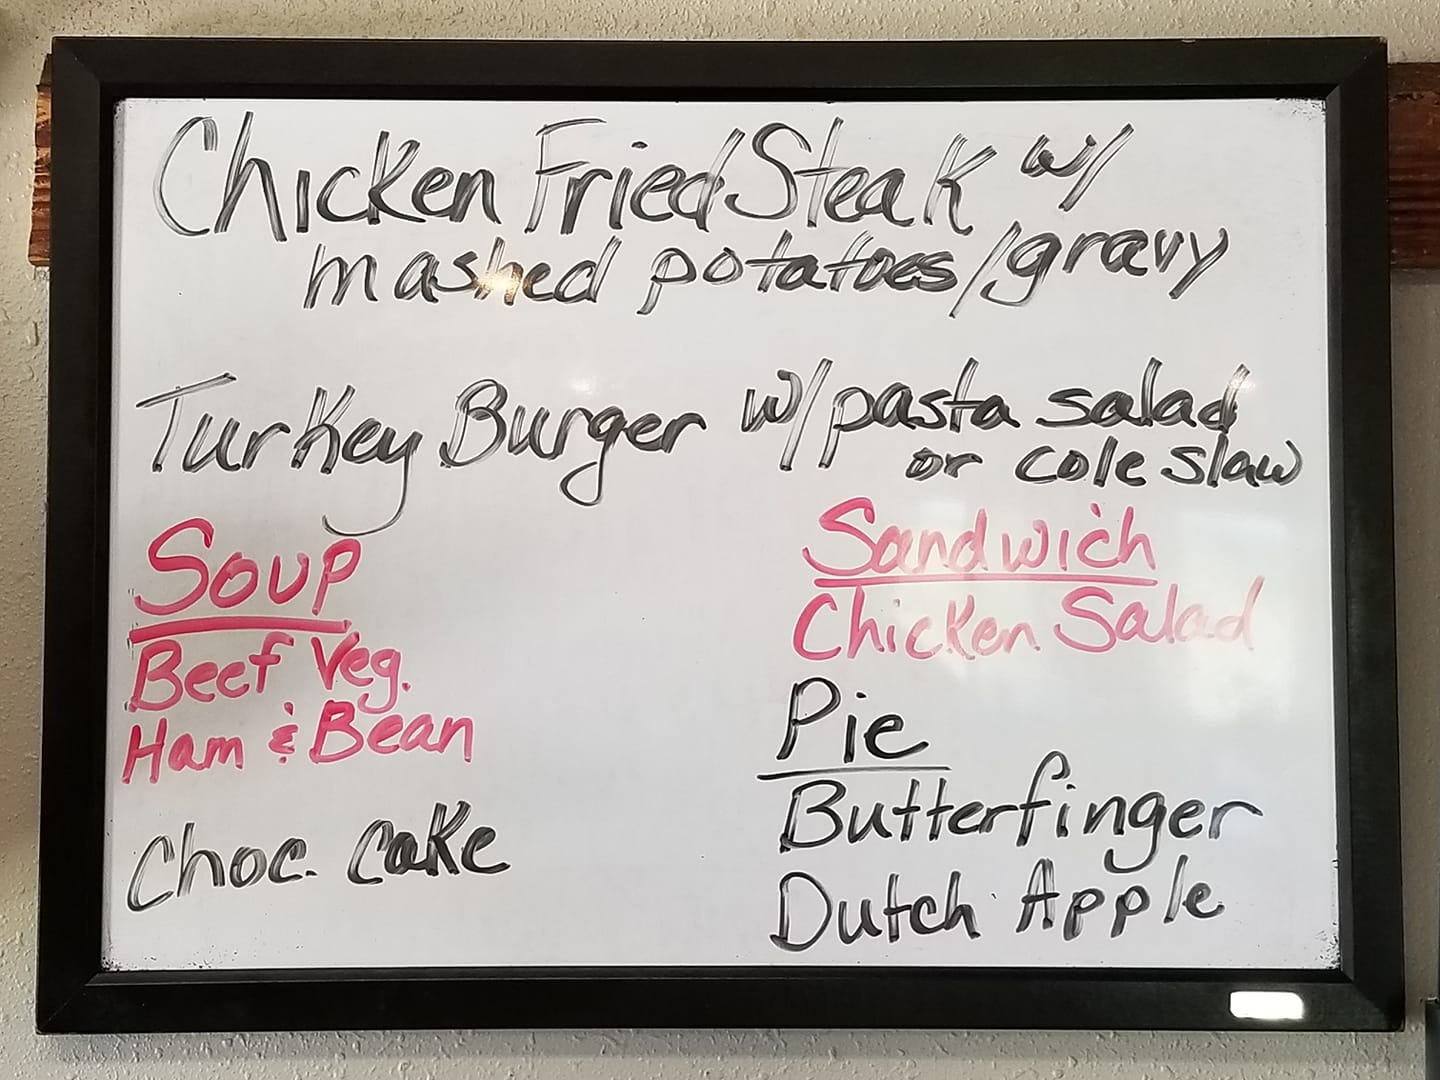 Chicken Fried Steak w/
mashed potatoes/gravy
Turkey Burger w/pasta salad
or cole slaw
Soup
Beef Veg.
Ham & Bean
Choc. Cake
Sandwich
Chicken Salad
Pie
Butterfinger
Dutch Apple